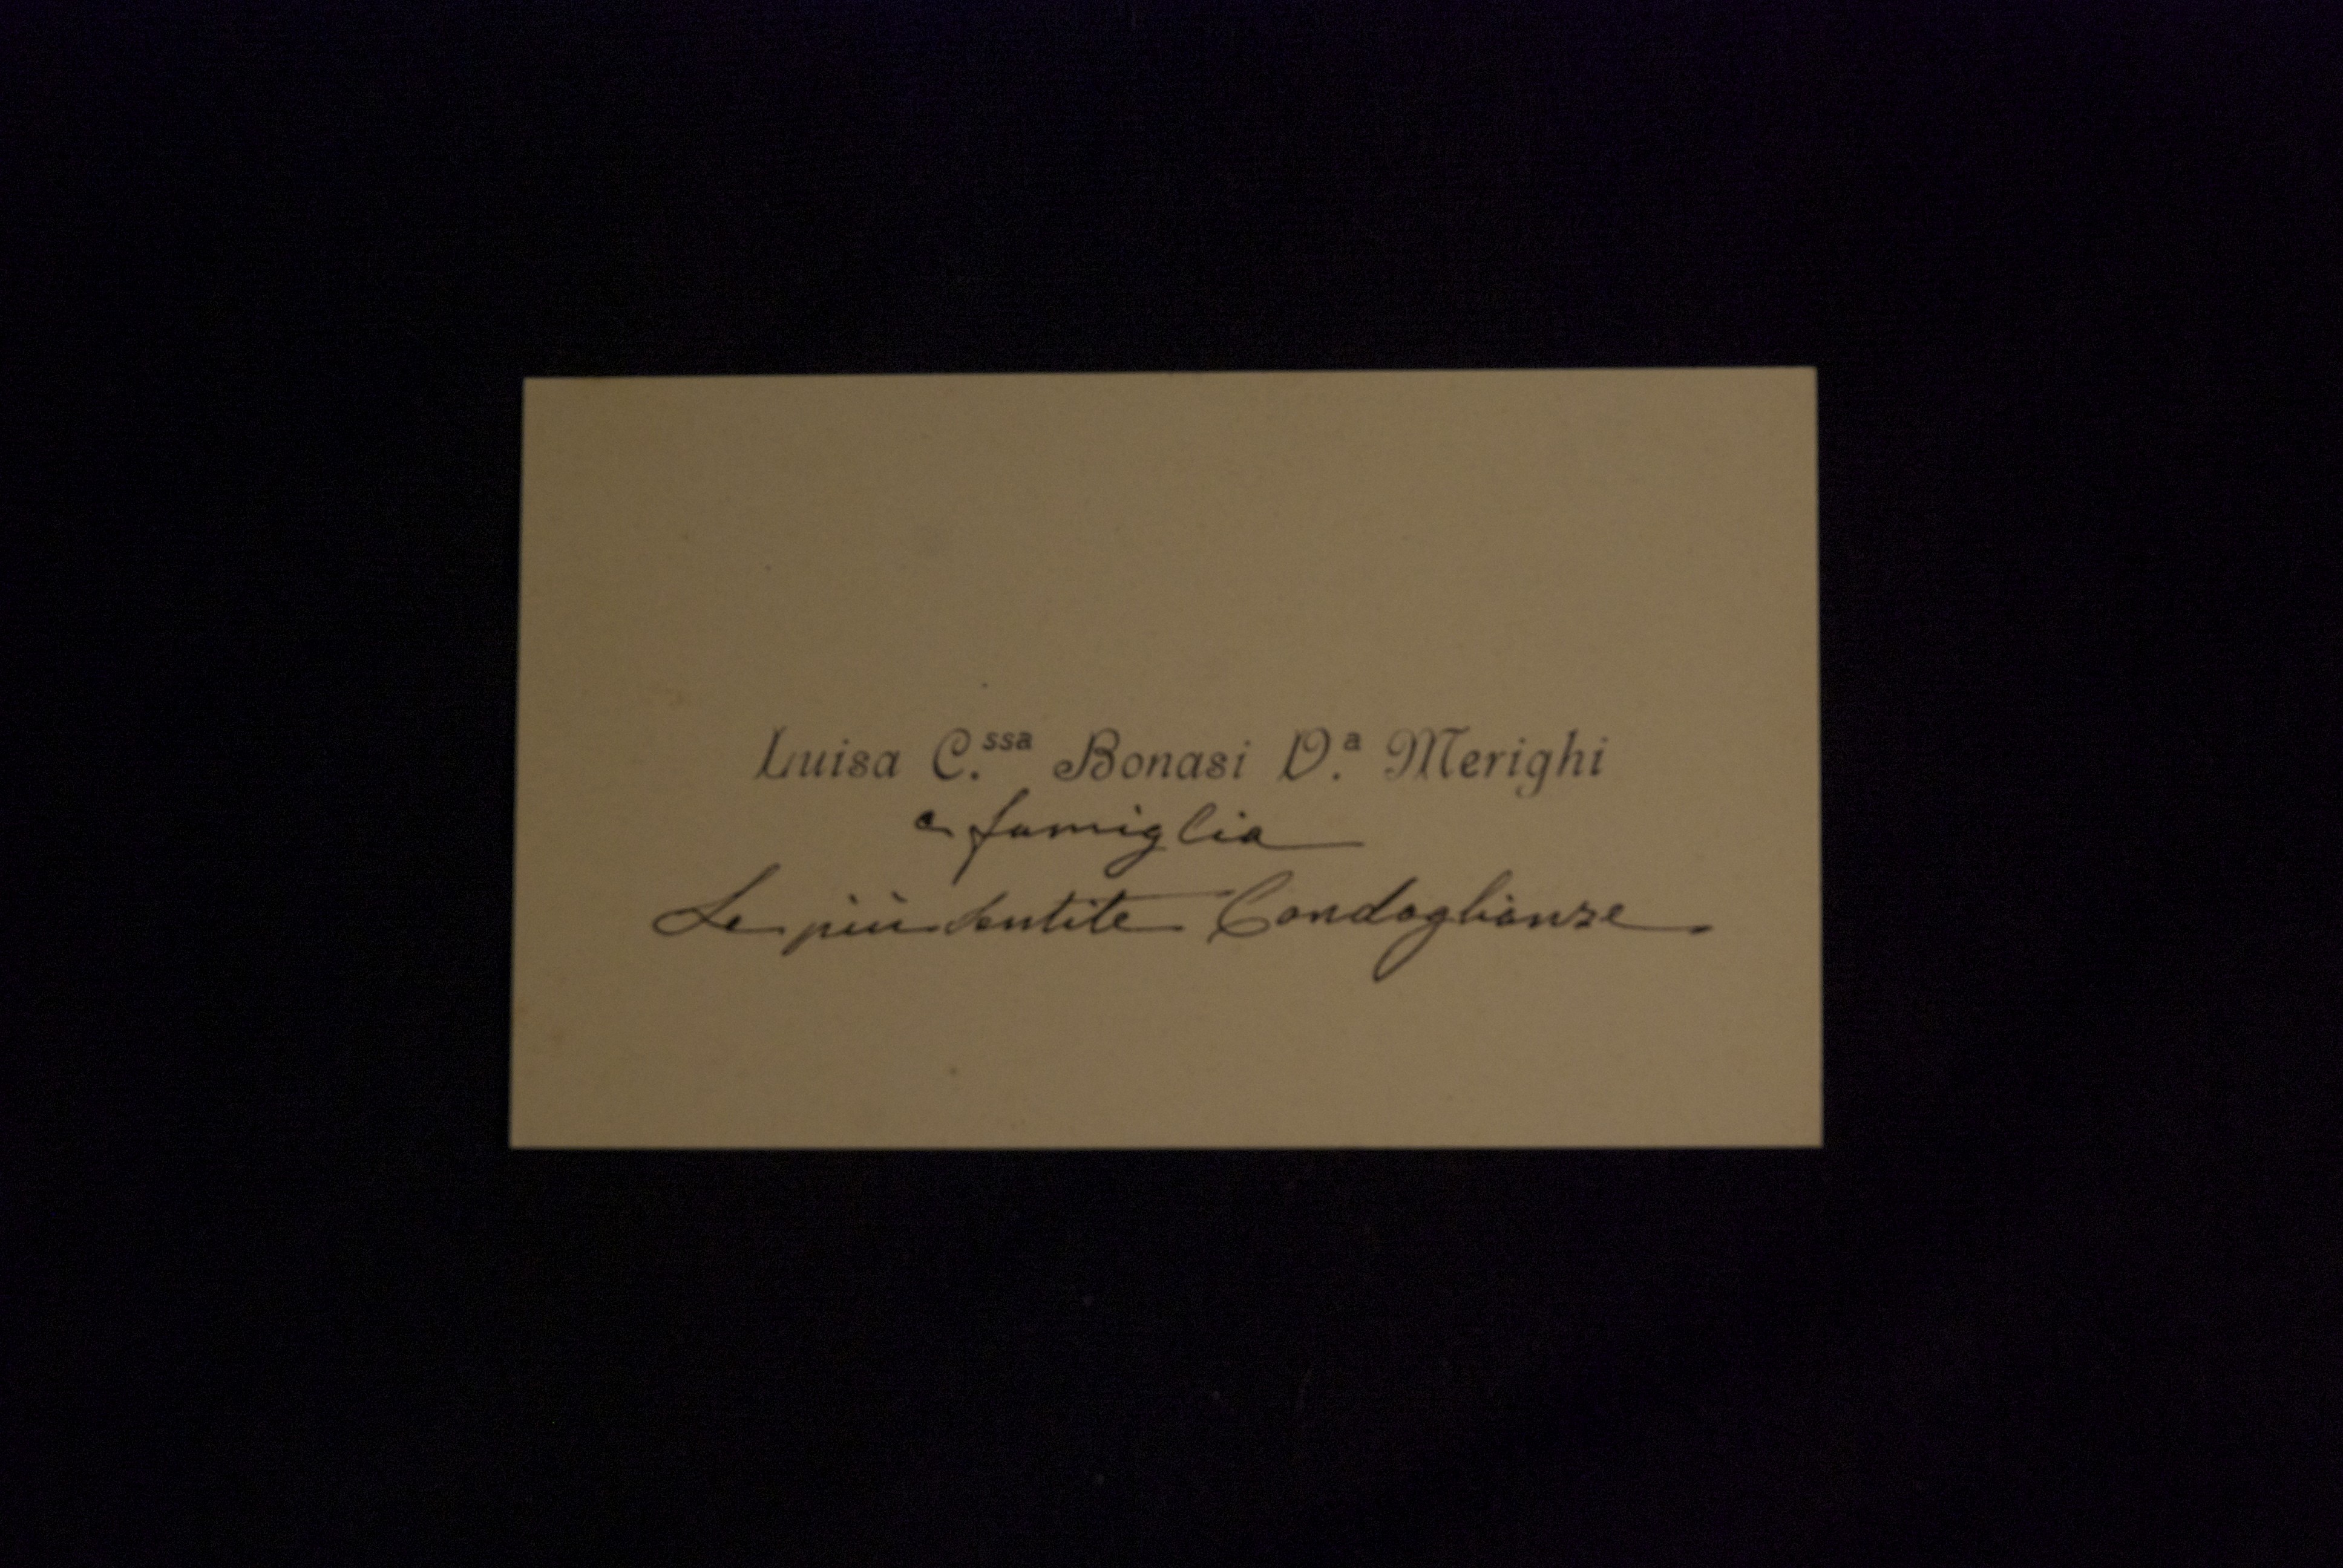 Luisa C.ssa Bonasi V.a Merighi
e famiglia
Le più sentite Condoglianze